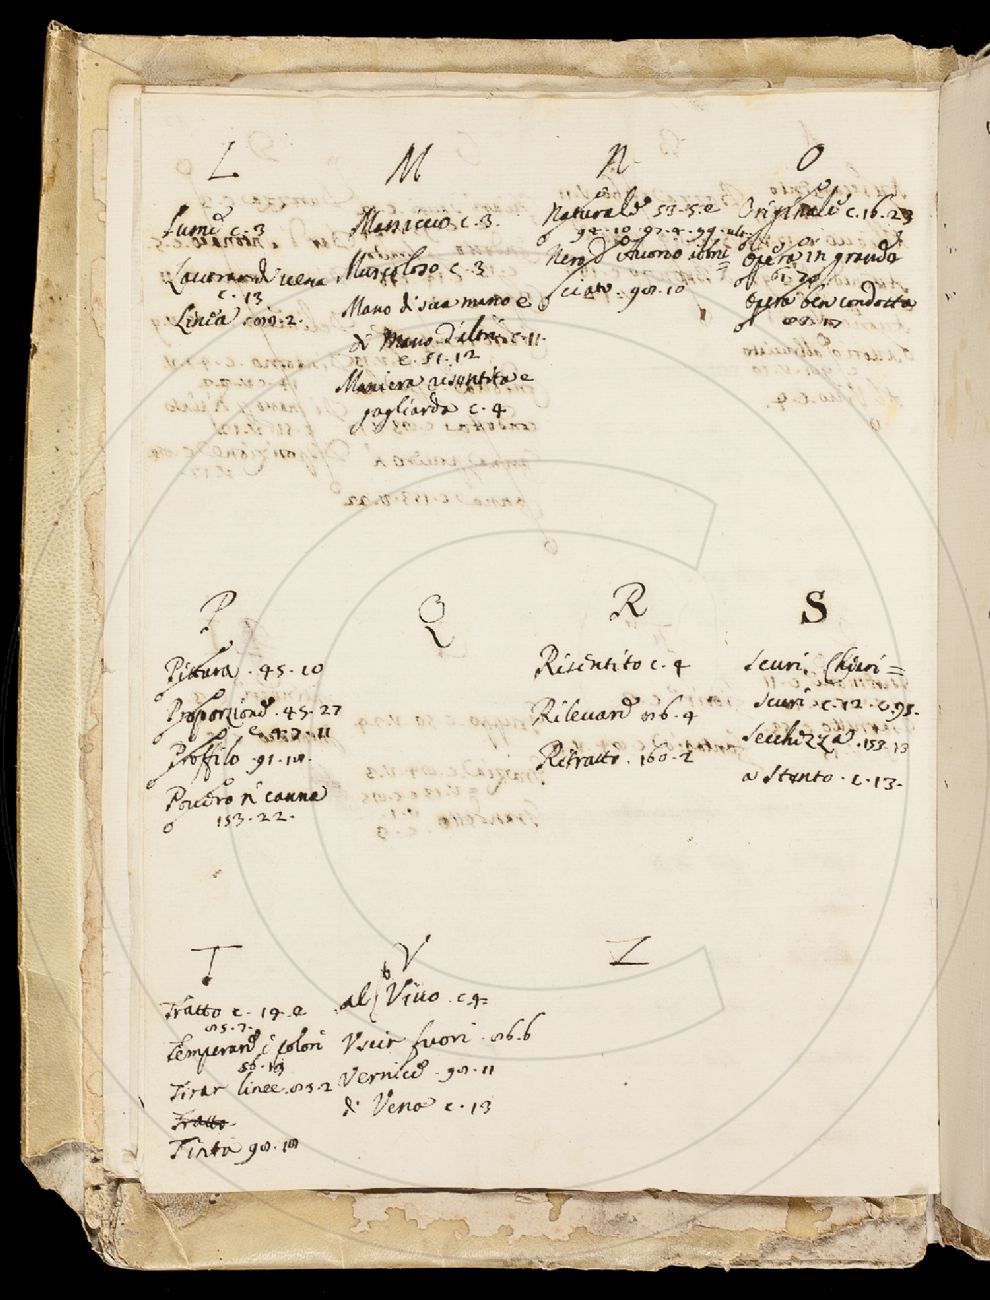 L
Lume c. 3
Lavorar di vena
c. 13
Linea
M
Massiccio c. 3.
Muscoloso c. 3
Mano di sua mano e
di Mano d'altri c. 11.
e. 51. 12
Maniera risentita e
gagliarda c. 4
N
Naturale 53. 5. e
Nero d'avorio abbru=
sciato. 98. 10
O
Originale c. 16. 23
opera in grande
61. 20
opera ben condotta
P
Pittura. 45. 10
Proporzione. 45. 27
Proffilo. 91. 18.
Powero n' canna
153. 22.
Q
R
Risentito c. 4
Rilevare 86. 4
Ritratto. 160. 2
S
scuri, Chiari=
scuri c. 12.
secchezza. 153. 13
a stento. c. 13.
T
Tratto c. 14. e
85. 7.
Temperare i colori
56. 13
Tirar linee. 85. 2
Tratto
Tinta 98. 18
V
al Vivo. c 4=
Uscir fuori. 86. 6
Vernice. 98. 11
di Vena c. 13
Z